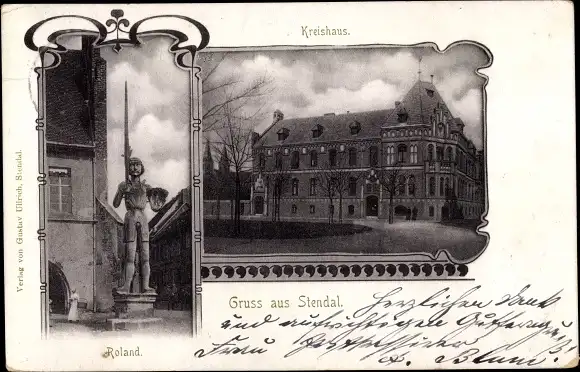 Kreishaus.
Verlag von Gustav Ullrich, Stendal.
Roland.
Gruss aus Stendal.
Herzlichen Dank
und aufrichtigen
Frau